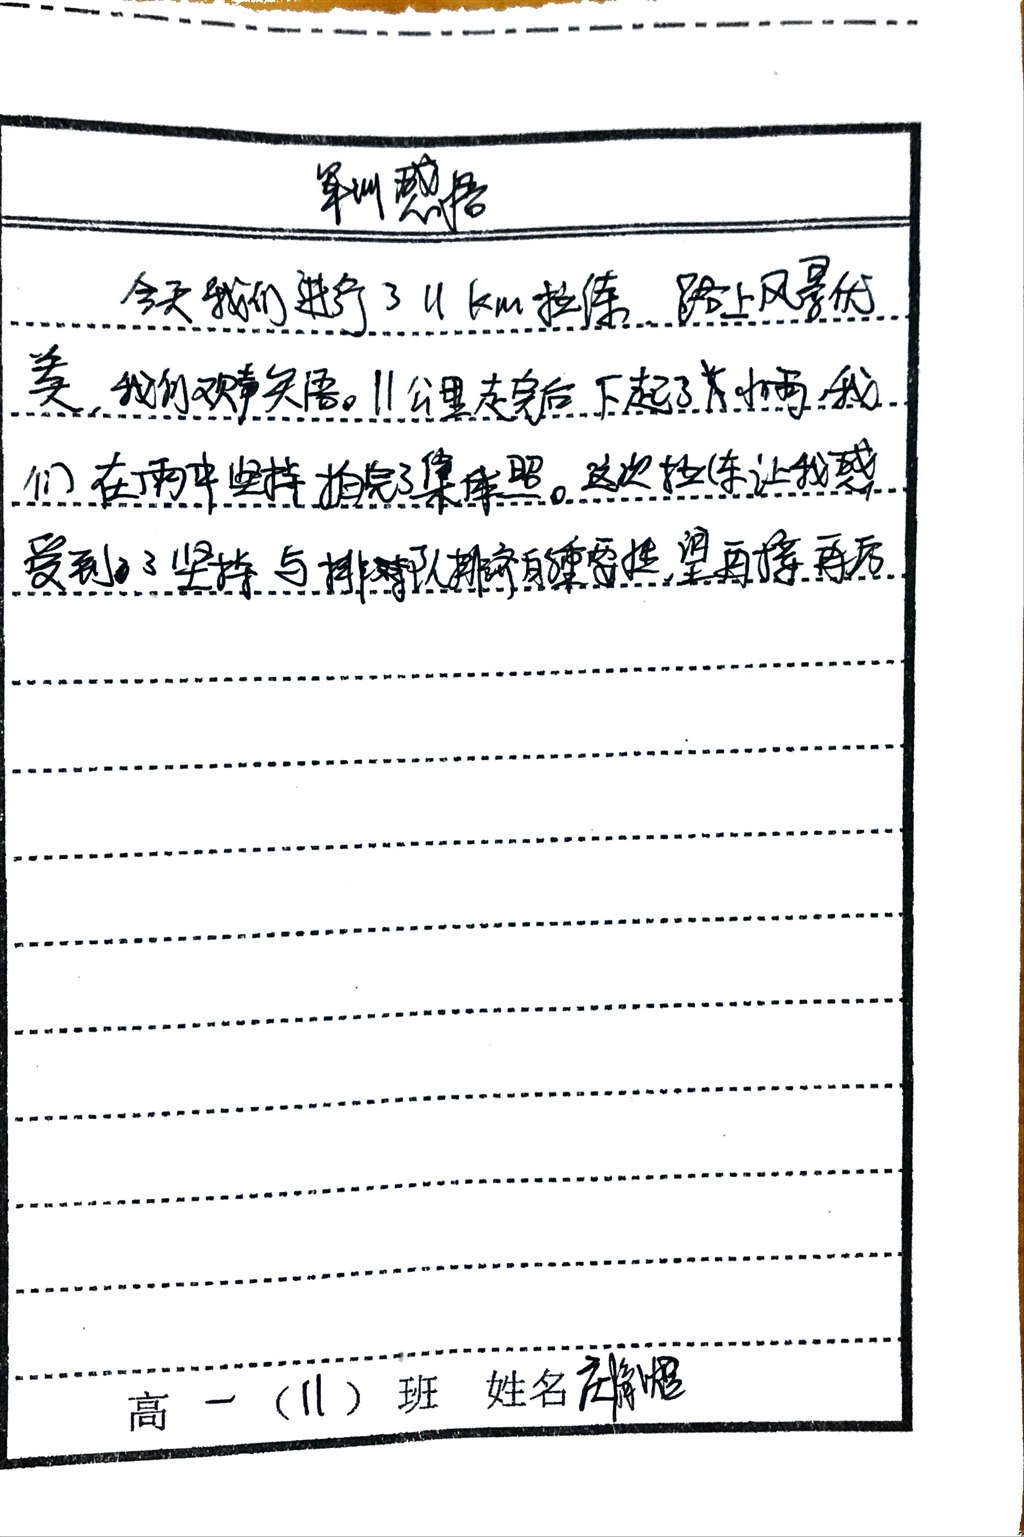 军训感悟
今天我们进行了11km拉练，路上风景优
美，我们欢声笑语。11公里走完后下起了小雨，我
们在雨中坚持拍完了集体照。这次拉练让我感
受到了坚持与排队排齐的重要性，望再接再厉
高一（11）班 姓名